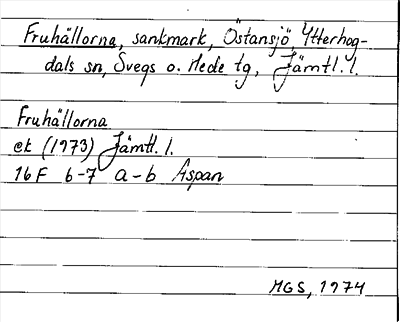 Fruhällorna, sankmark, Östansjö, Ytterhog-
dals sn, Svegs o. Hede tg, Jämtl. l.
Fruhällorna
ek (1973) Jämtl. l.
16 F 6-7 a-b Aspan
MGS, 1974